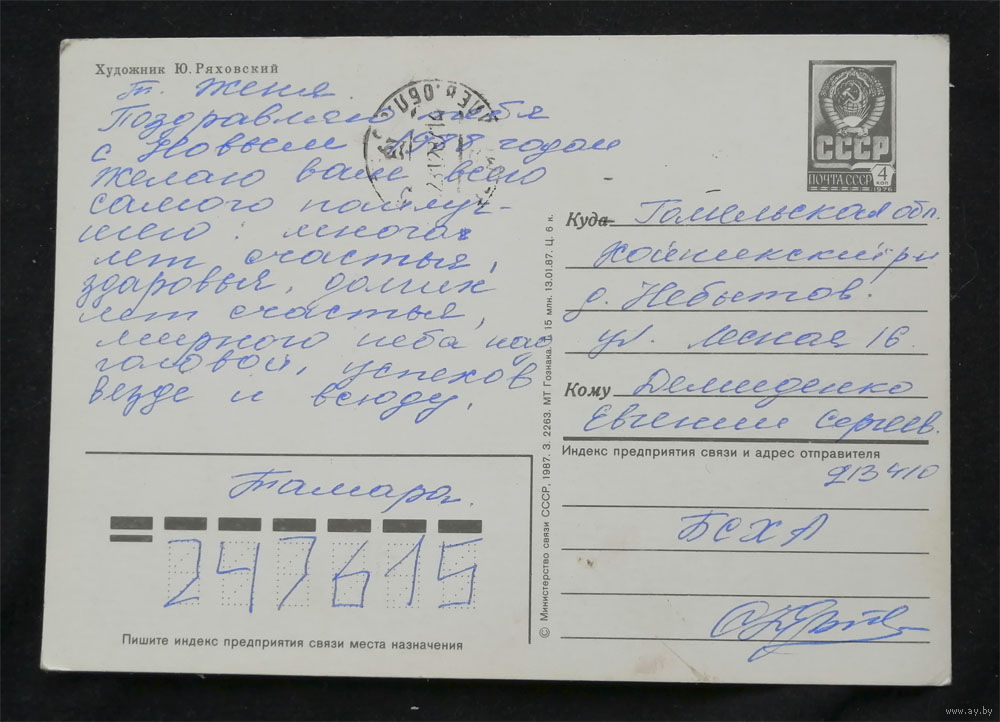 Художник Ю. Ряховский
т. Женя.
Поздравляю тебя
с Новым 1988 годом
желаю вам всего
самого наилуч-
шего: многа
лет счастья,
здаровья, долгих
лет счастья,
мирного неба над
головой, успехов
везде и всюду.
Тамара.
247615
Пишите индекс предприятия связи места назначения
© Министерство связи СССР, 1987. З. 2263. МТ Гознака. 15 млн. 13.01.87. Ц. 6 к.
СССР
ПОЧТА СССР 4 КОП
1976
Куда Гомельская обл.
Хойникский р-н
д. Небытов.
ул. Лесная 16.
Кому Демиденко
Евгении Сергеев.
Индекс предприятия связи и адрес отправителя
213410
БСХА
www.ay.by